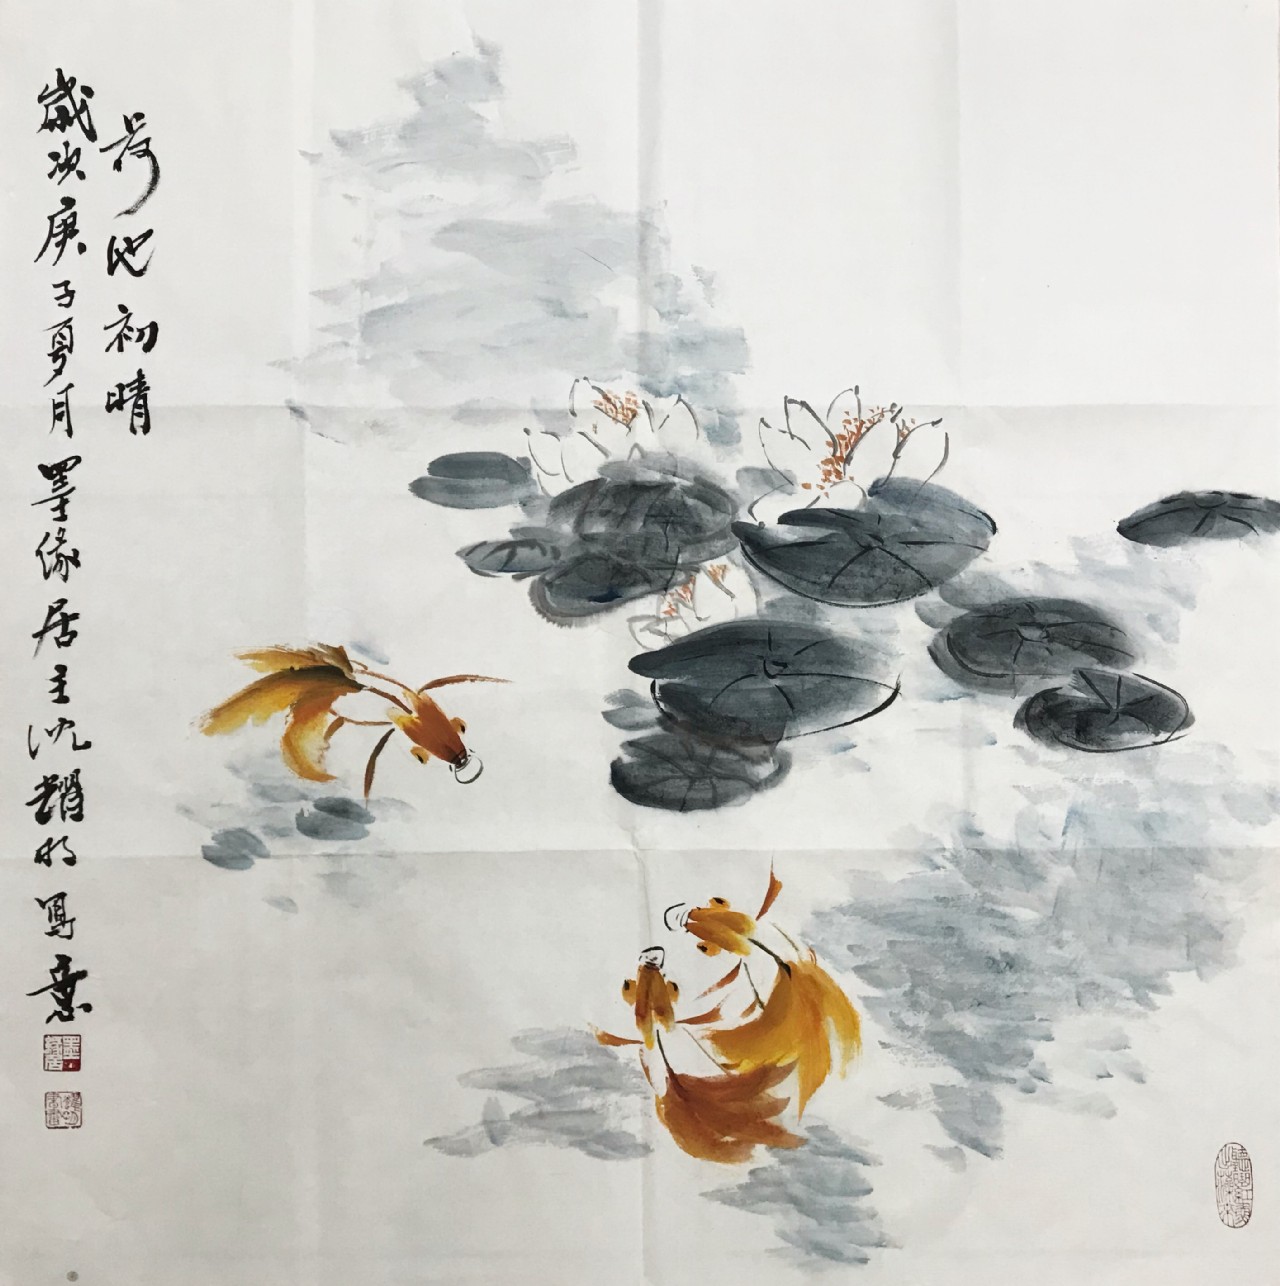 荷池初晴
歲次庚子夏月墨緣居主沈耀明寫意